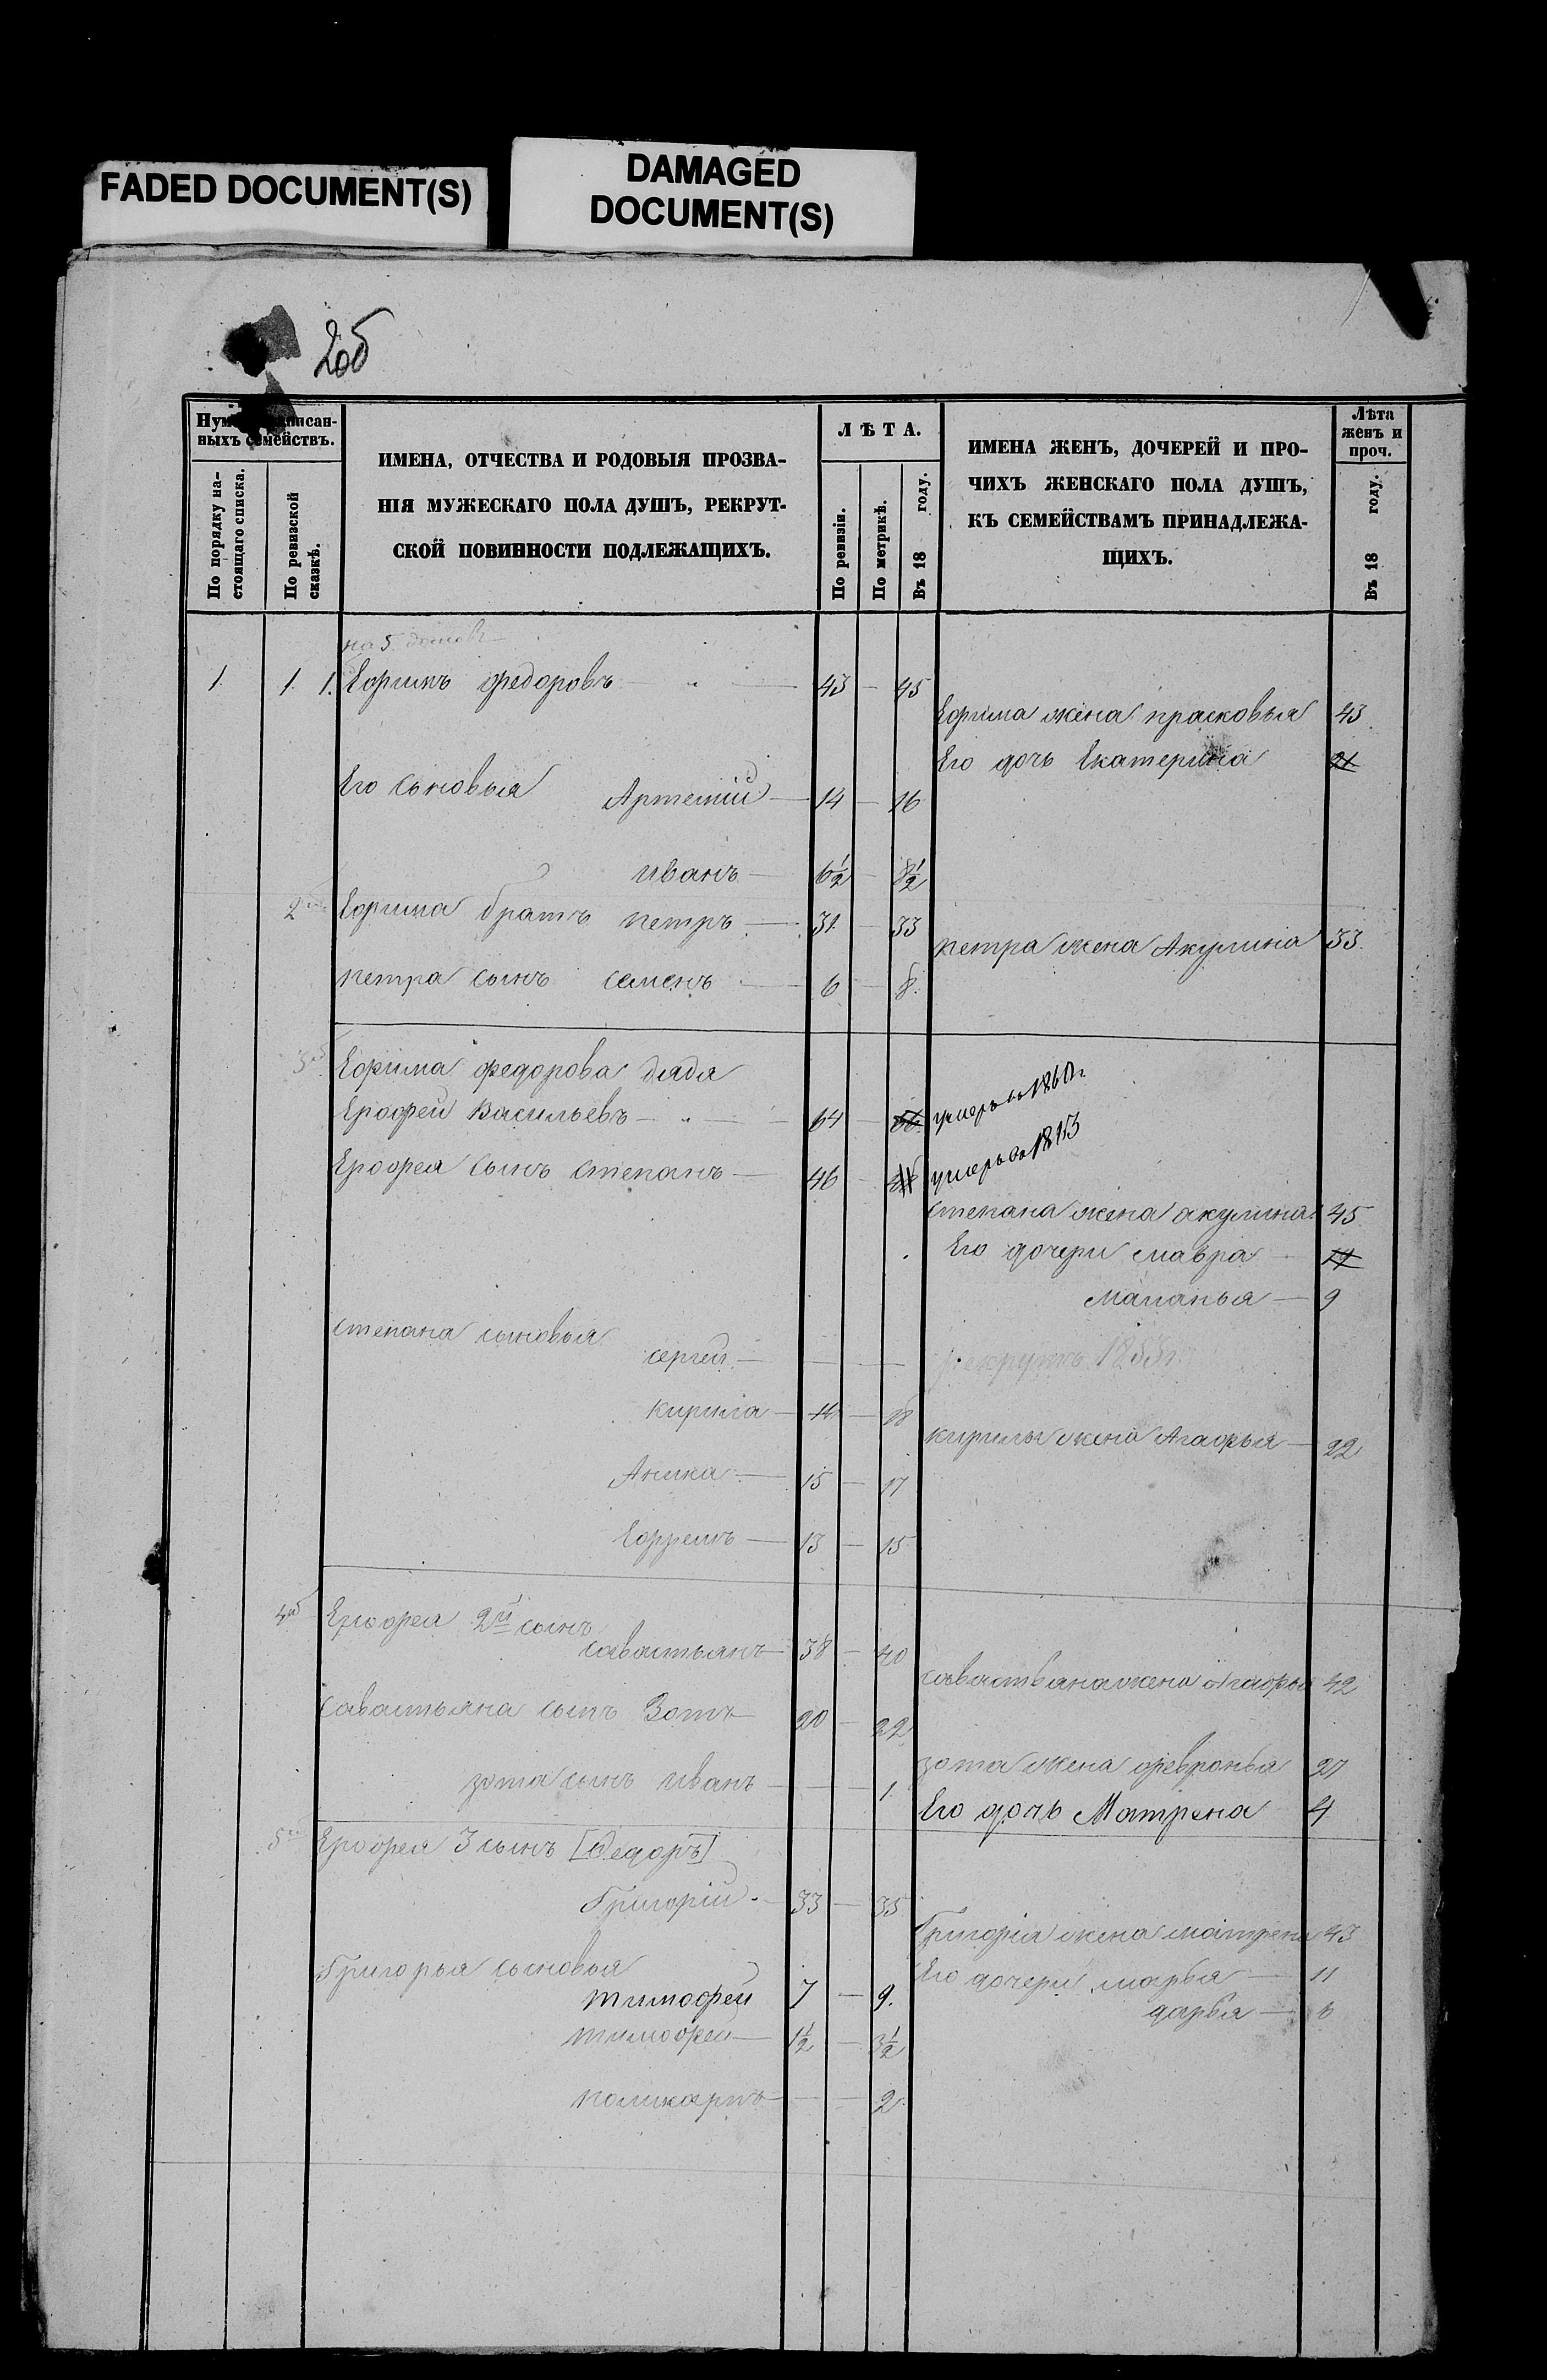 FADED DOCUMENT(S)
DAMAGED
DOCUMENT(S)
ныхъ семействъ.
По порядку на-
стоящаго списка.
По ревизской
сказкѣ.
ИМЕНА, ОТЧЕСТВА И РОДОВЫЯ ПРОЗВА-
НІЯ МУЖЕСКАГО ПОЛА ДУШЪ, РЕКРУТ-
СКОЙ ПОВИННОСТИ ПОДЛЕЖАЩИХЪ.
ЛѢТА.
По ревизіи.
По метрикѣ.
Въ 18 году.
ИМЕНА ЖЕНЪ, ДОЧЕРЕЙ И ПРО-
ЧИХЪ ЖЕНСКАГО ПОЛА ДУШЪ,
КЪ СЕМЕЙСТВАМЪ ПРИНАДЛЕЖА-
ЩИХЪ.
Лѣта
женъ и
проч.
Въ 18 году.
на 5 домовъ
1. 1. 1. Ефимъ федоровъ — 43 — 45
Ефима жена прасковья 43
Его дочь Екатерина 21
Его сыновья Артемій — 14 — 16
иванъ — 6½ — 8½
2й Ефима братъ петръ — 31 — 33
петра жена Акулина 33
петра сынъ семенъ — 6 — 8
3й Ефима федорова дядя
Ерофей Васильевъ — 64 — 66 умеръ въ 1860г.
Ерофея сынъ степанъ — 46 — умеръ въ
степана жена акулина 45
Его дочери мавра —
Маланья — 9
степана сыновья
сергей — рекрутъ 1855г.
кирила — 16 — 18
кирилы жена Агафья — 22
Аника — 15 — 17
Ефремъ — 13 — 15
4й Ерофея 2й сынъ
савастьянъ — 38 — 40
савастьяна жена Агафья 42
савастьяна сынъ Зотъ 20 — 22
зота жена февронья 27
зота сынъ иванъ — 1
Его дочь Матрена 4
5й Ерофея 3 сынъ [Федоръ]
Григорій — 33 — 35
Григорія жена матрена 43
Григорья сыновья
Его дочери марья — 11
тимофей 7 — 9.
дарья — 6
тимофей — 1½ — 3½
поликарпъ — 2